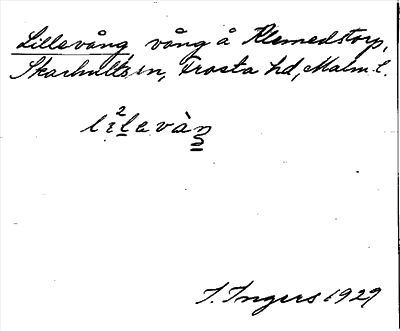 Lillevång, vång å Klemedstorp,
Skarhults sn, Frosta hd, Malm. l.
li²lavàŋ
I. Ingers 1929